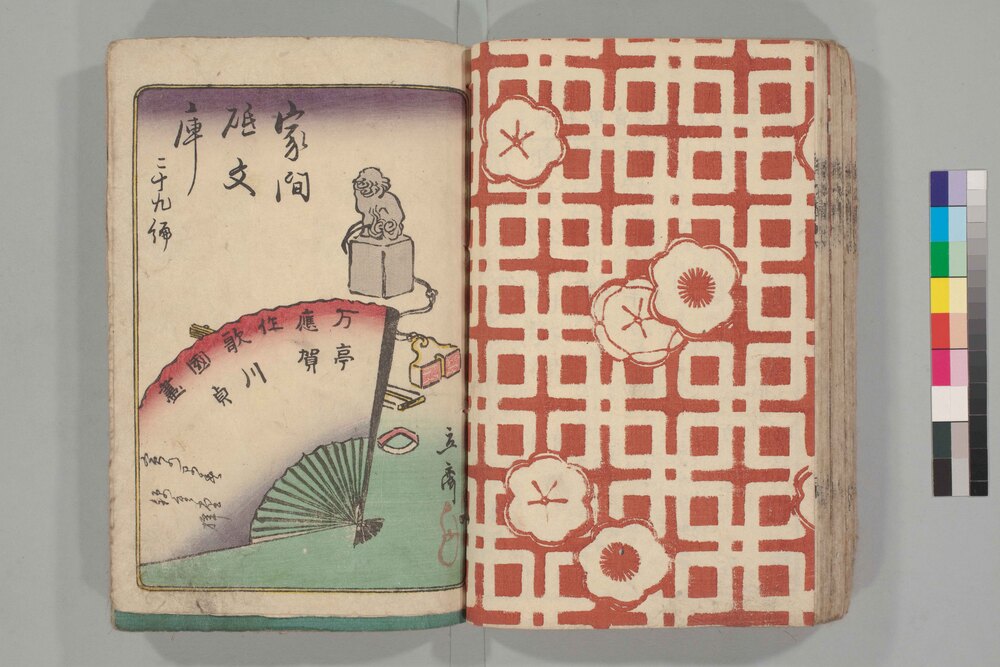 家間
砥文
庫
二十九編
万亭
應賀
作
歌川
國貞
畫
立齋